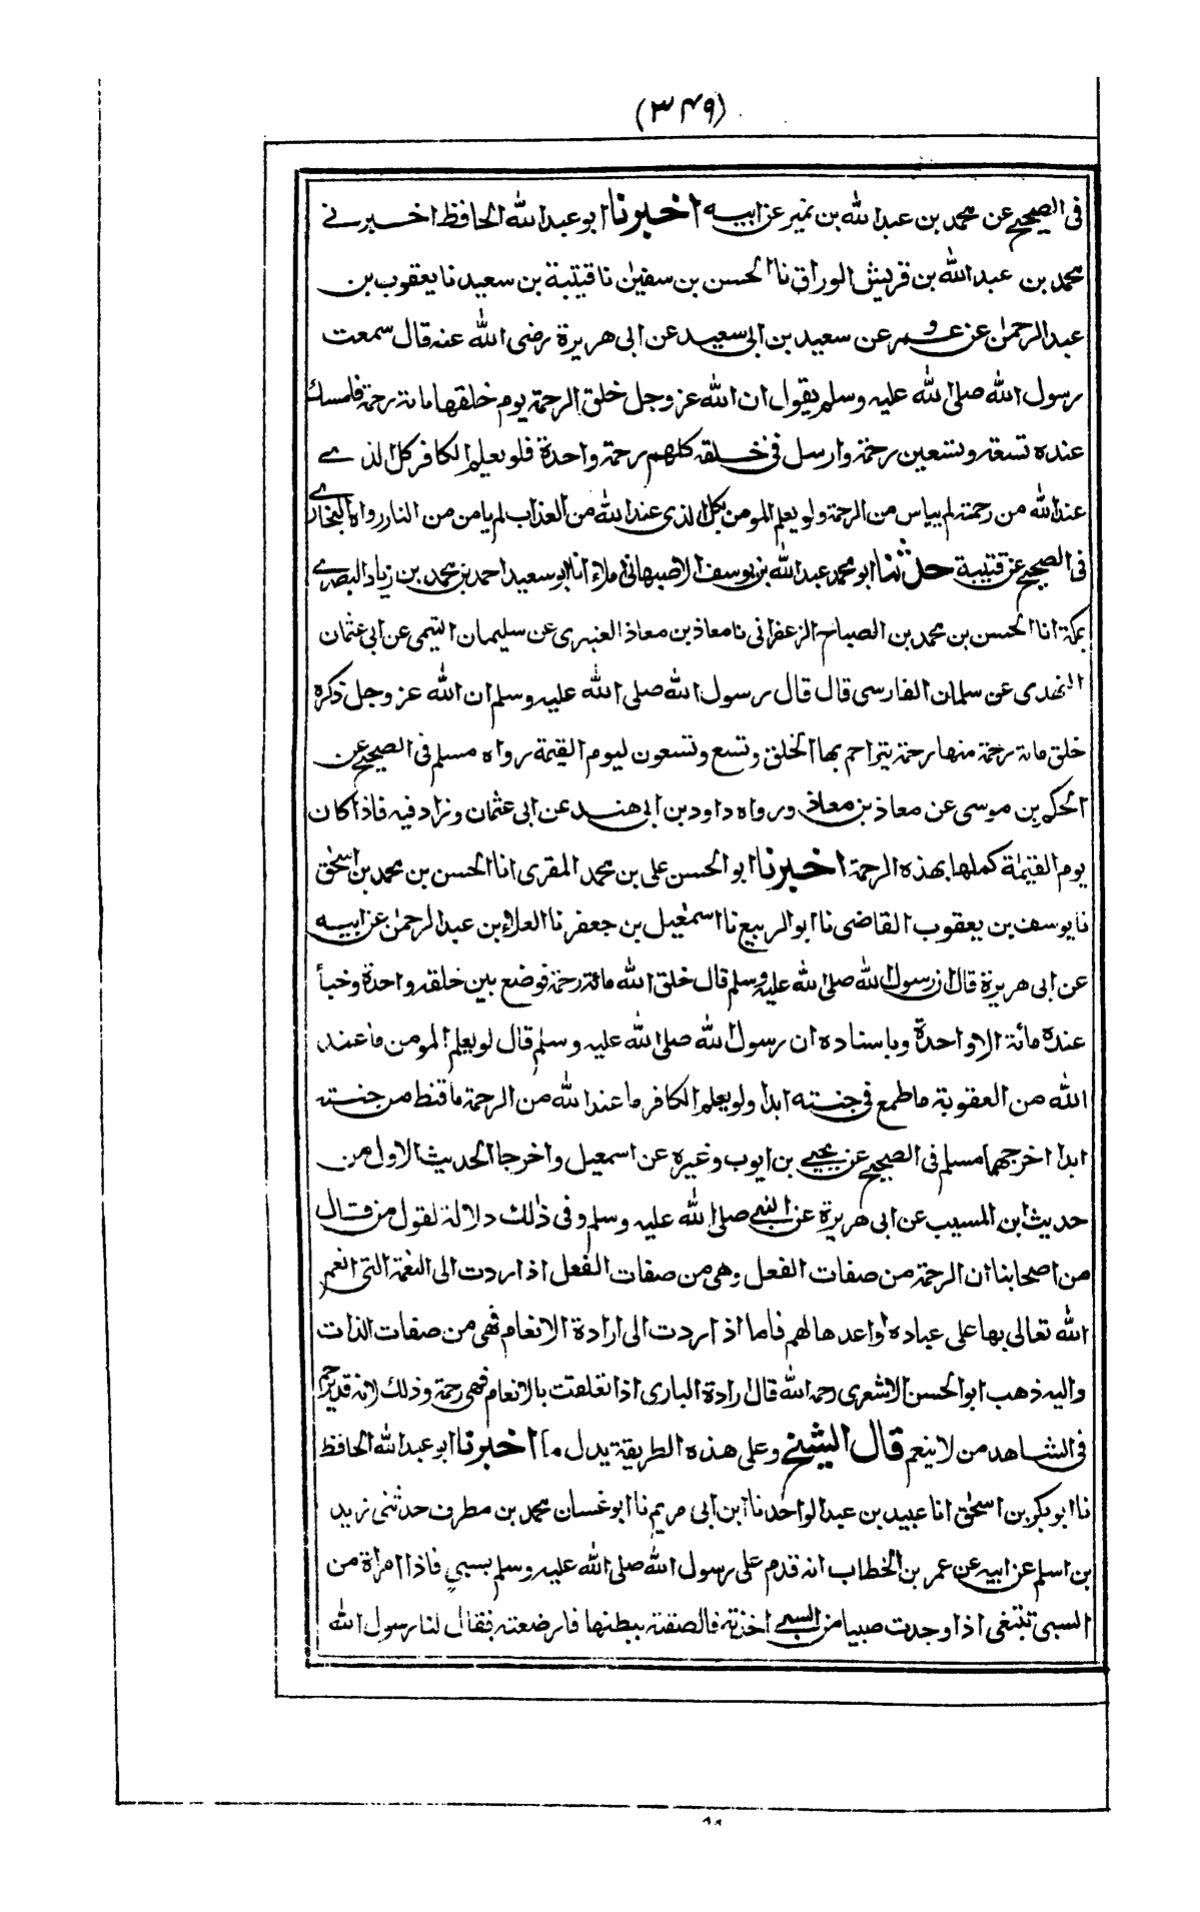 (٣٤٩)
فى الصحيح عن محمد بن عبد الله بن نمير عن ابيه اخبرنا ابو عبد الله الحافظ اخبرنے
محمد بن عبد الله بن قريش الوراق نا الحسن بن سفين نا قتيبة بن سعيد نا يعقوب بن
عبد الرحمن عن عمرو عن سعيد بن ابى سعيد عن ابى هريرة رضى الله عنه قال سمعت
رسول الله صلى الله عليه وسلم يقول ان الله عز وجل خلق الرحمة يوم خلقها مائة رحمة فامسك
عنده تسعة وتسعين رحمة وارسل فى خلقه كلهم رحمة واحدة فلو يعلم الكافر كل الذے
عند الله من رحمته لم يياس من الرحمة ولو يعلم المومن بكل الذى عند الله من العذاب لم يامن من النار رواه البخارے
فى الصحيح عن قتيبة حدثنا ابو محمد عبد الله بن يوسف الاصبهانى املاء انا ابو سعيد احمد بن محمد بن زياد البصرے
بمكة انا الحسن بن محمد بن الصباح الزعفرانى نا معاذ بن معاذ العنبرى عن سليمان التيمى عن ابى عثمان
النهدى عن سلمان الفارسى قال قال رسول الله صلى الله عليه وسلم ان الله عز وجل ذكره
خلق مائة رحمة منها رحمة يتراحم بها الخلق وتسع وتسعون ليوم القيمة رواه مسلم فى الصحيح عن
الحكم بن موسى عن معاذ بن معاذ ورواه داود بن ابى هند عن ابى عثمان وزاد فيه فاذا كان
يوم القيمة كملها بهذه الرحمة اخبرنا ابو الحسن على بن محمد المقرى انا الحسن بن محمد بن اسحٰق
نا يوسف بن يعقوب القاضى نا ابو الربيع نا اسمٰعيل بن جعفر نا العلاء بن عبد الرحمن عن ابيه
عن ابى هريرة قال ان رسول الله صلى الله عليه وسلم قال خلق الله مائة رحمة فوضع بين خلقه واحدة وخبأ
عنده مائة الا واحدة وباسناده ان رسول الله صلى الله عليه وسلم قال لو يعلم المومن ما عند
الله من العقوبة ما طمع فى جنته ابدا ولو يعلم الكافر ما عند الله من الرحمة ما قنط من جنته
ابدا اخرجهما مسلم فى الصحيح عن يحيے بن ايوب وغيره عن اسمعيل واخرجا الحديث الاول من
حديث ابن المسيب عن ابى هريرة عن النبے صلى الله عليه وسلم وفى ذلك دلالة لقول من قال
من اصحابنا ان الرحمة من صفات الفعل وهى من صفات الفعل اذا ردت الى النعمة التى انعم
الله تعالى بها على عباده او اعدها لهم فاما اذا ردت الى ارادة الانعام فهى من صفات الذات
واليه ذهب ابو الحسن الاشعرى رحمه الله قال ارادة البارى اذا تعلقت بالانعام فهى رحمة وذلك لانه قد يرحم
فى الشاهد من لا ينعم قال الشيخ وعلى هذه الطريقة يدل ما اخبرنا ابو عبد الله الحافظ
نا ابو بكر بن اسحٰق انا عبيد بن عبد الواحد نا ابن ابى مريم نا ابو غسان محمد بن مطرف حدثنى زيد
بن اسلم عن ابيه عن عمر بن الخطاب انه قدم على رسول الله صلى الله عليه وسلم بسبى فاذا امراة من
السبى تبتغى اذا وجدت صبيا من السبے اخذته فالصقته ببطنها فارضعته فقال لنا رسول الله